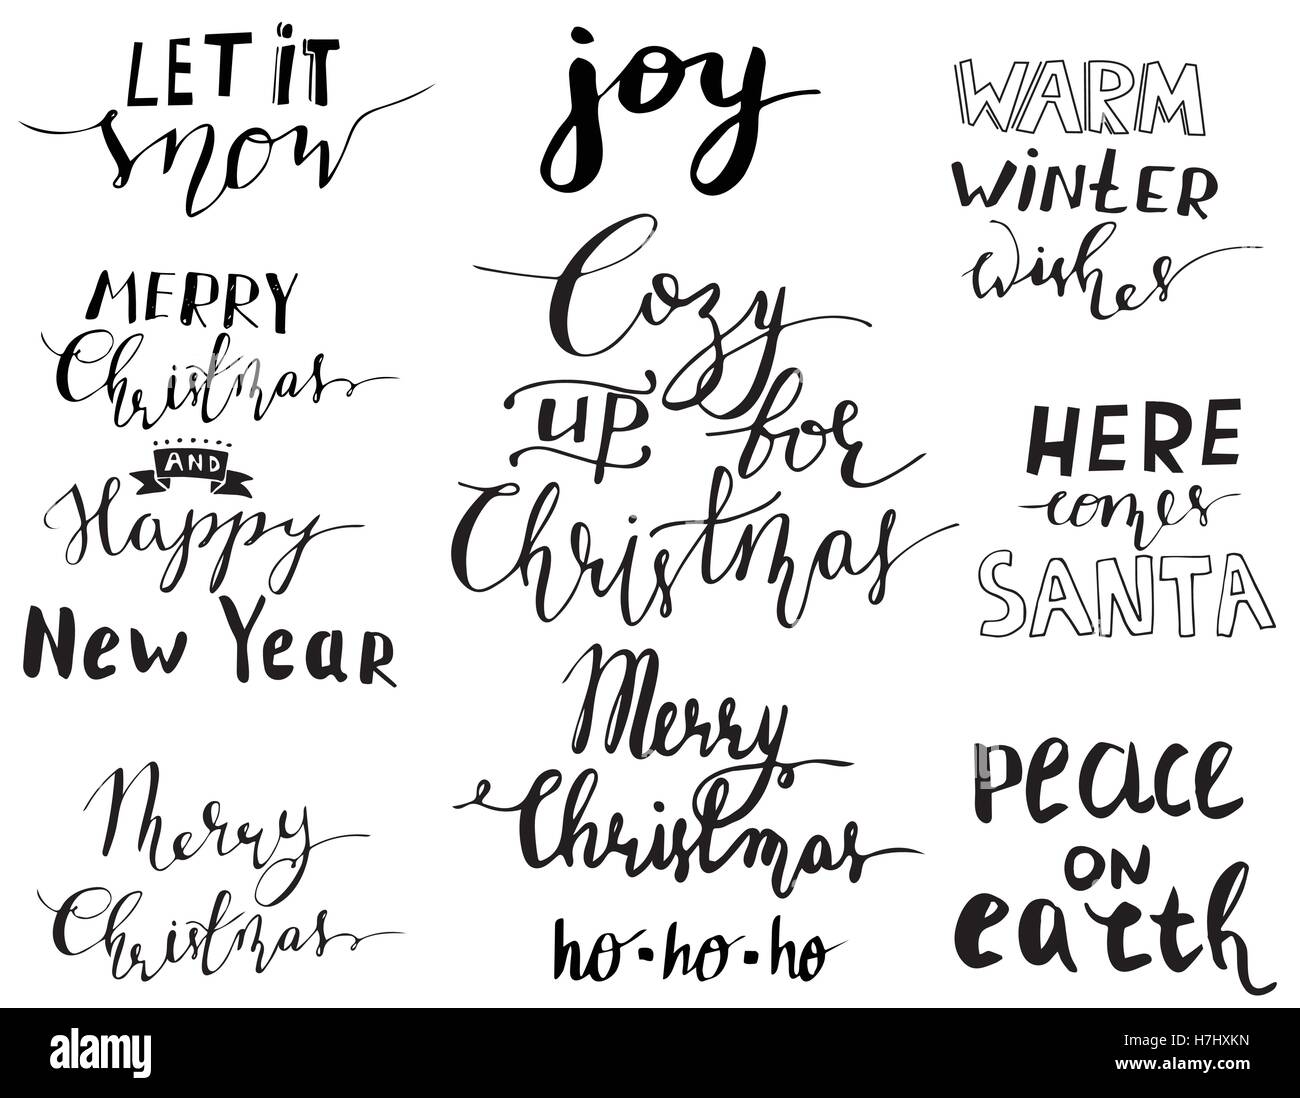 LET iT
snow
MERRY
Christmas
AND
Happy
New Year
Merry
Christmas
joy
Cozy
up for
Christmas
Merry
Christmas
ho·ho·ho
WARM
WiNtER
wishes
HERE
comes
SANTA
peace
ON
earth
alamy
alamy stock photo
H7HXKN
www.alamy.com